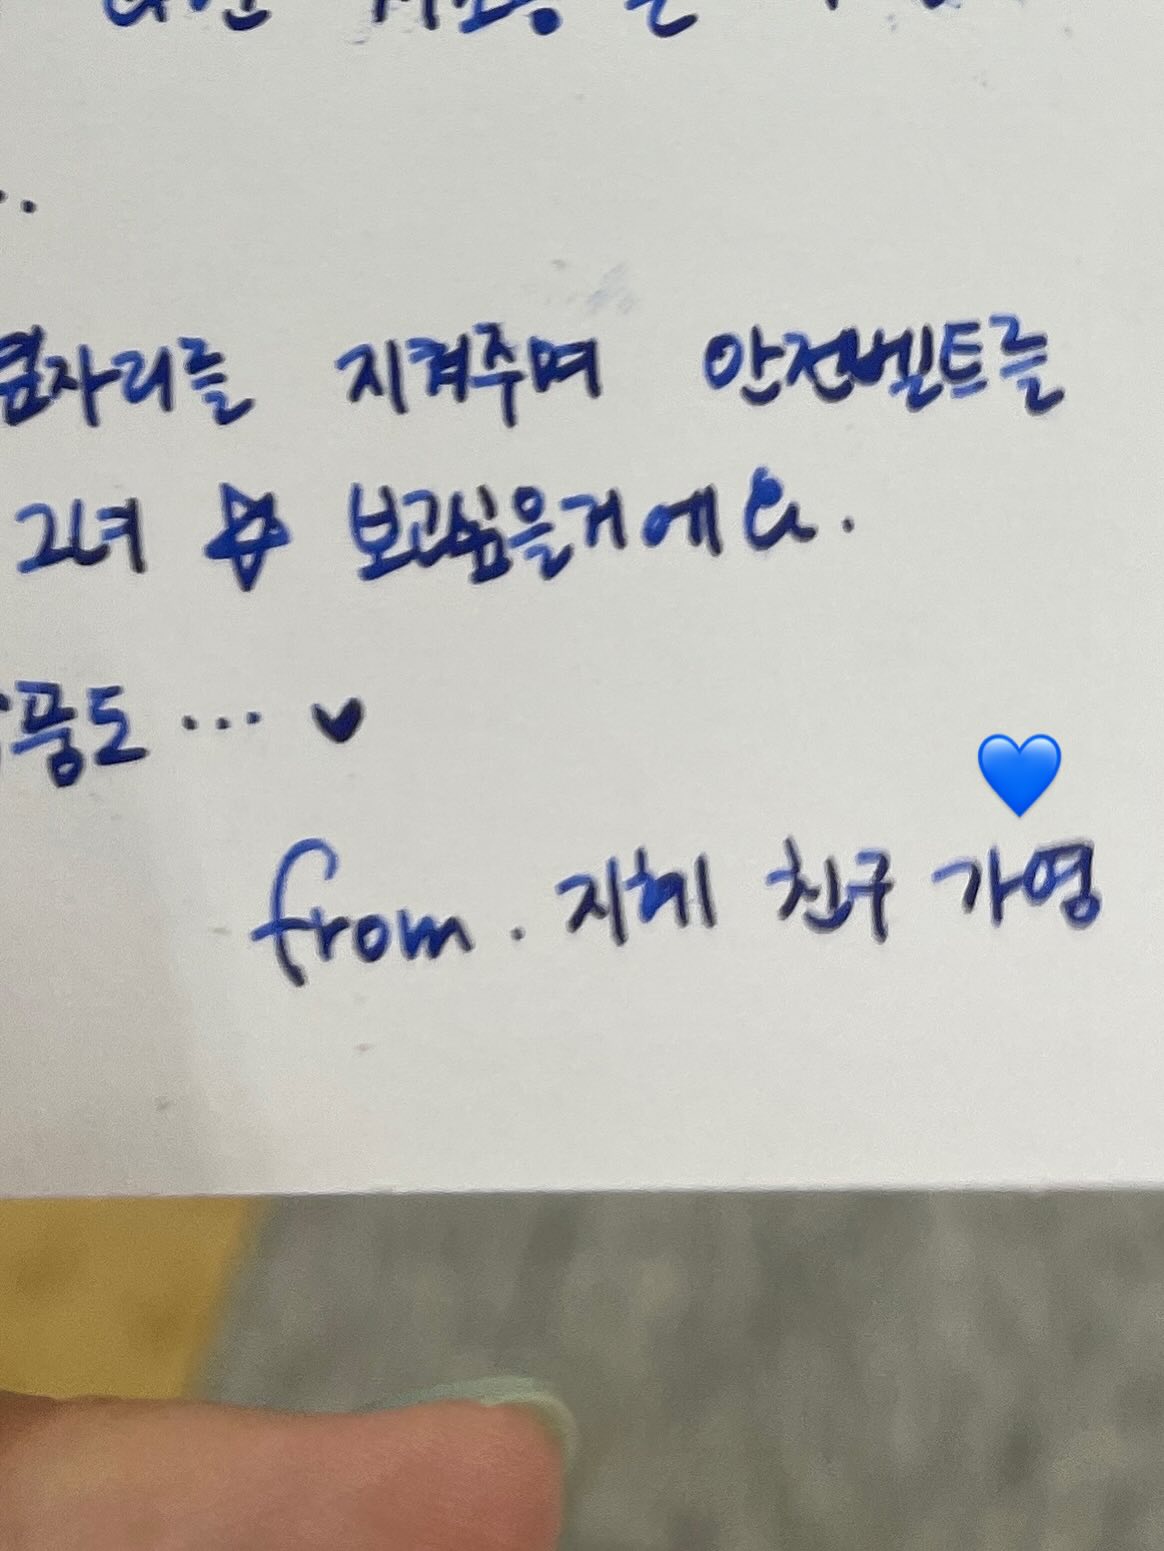 ..
옆자리를 지켜주며 안전벨트를
그녀 ☆ 보고싶을거에요.
풍도 ... ♥
💙
from. 지혜 친구 가영